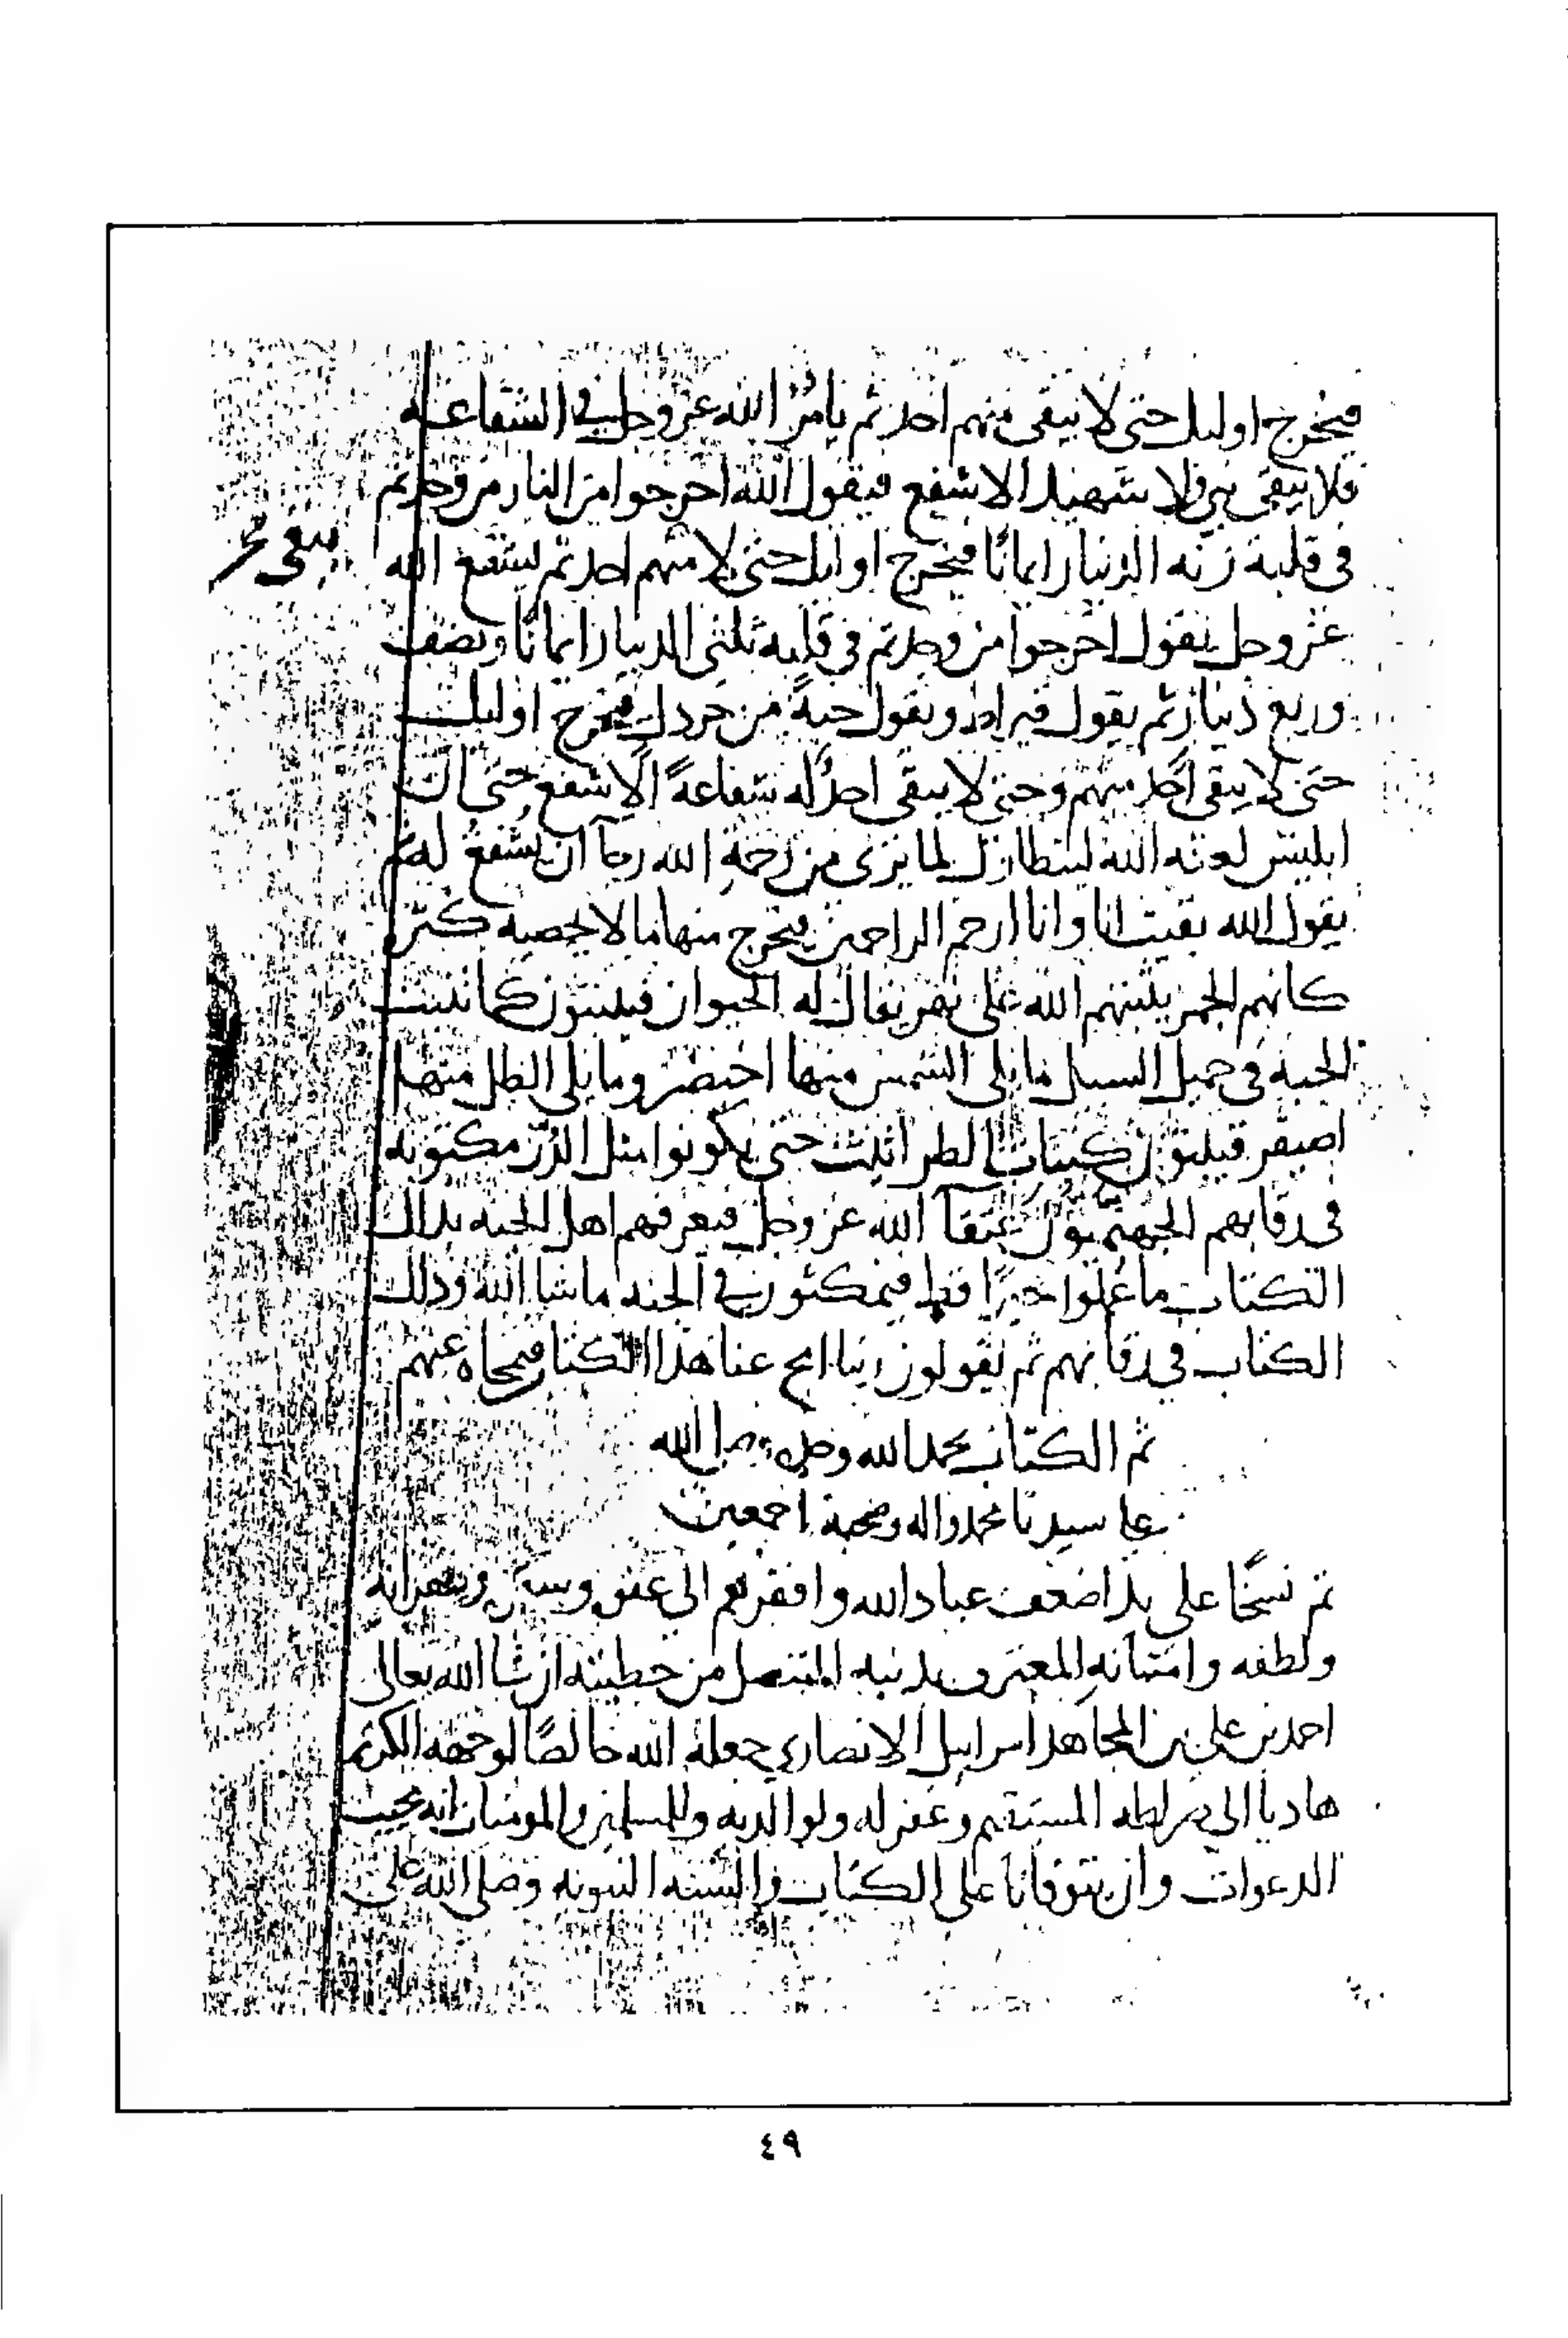 فيخرج اوليك حتى لا يبقى منهم احد ثم يامر الله عز وجل في الشفاعه
فلا يبقى نبي ولا شهيد الا شفع فيقول الله اخرجوا من النار من وجدتم
في قلبه زنه الدينار ايمانا فيخرج اوليك حتى لا منهم احد ثم يشفع الله
يبقى
عز وجل يقول اخرجوا من وجدتم في قلبه ثلثي الدينار ايمانا ونصف
وربع دينار ثم يقول قيراط ويقول حبة من خردل فيخرج اوليك
حتى لا يبقى احد منهم وحتى لا يبقى احد له شفاعة الا شفع حتى ان
ابليس لعنه الله ليتطاول لما يرى من رحمة الله رجآ ان يشفع له ثم
يقول الله بقيت انا وانا ارحم الراحمين فيخرج منها ما لا يحصيه كثره
كانهم الحمر يثبتهم الله على نهر يقال له الحيوان فينبتون كما تنبت
الحبه في حميل السيل ما يلي الشمس منها اخيضر وما يلي الظل منها
اصيفر فينبتون حتى يكونوا مثل الدر مكتوبه
في رقابهم الجهنميون عتقآ الله عز وجل فيعرفهم اهل الجنه بذلك
الكتاب ما عملوا خيرا قط فيمكثون في الجنه ما شا الله وذلك
الكتاب في رقابهم ثم يقولون ربنا امح عنا هذا الكتاب فيمحاه عنهم
تم الكتاب بحمد الله وصلى الله
على سيدنا محمد واله وصحبه اجمعين
تم نسخا على يد اضعف عباد الله وافقرهم الى عفو وغفرانه
ولطفه وامتنانه المعترف بذنبه المتنصل من خطيته ان شا الله تعالى
احمد بن علي بن المجاهد اسراييل الانصاري جعله الله خالصا لوجهه الكريم
هاديا الى صراطه المستقيم وغفر له ولوالديه وللمسلمين والمومنات انه مجيب
الدعوات وان يتوفانا على الكتاب والسنه النبويه وصلى الله على
٤٩